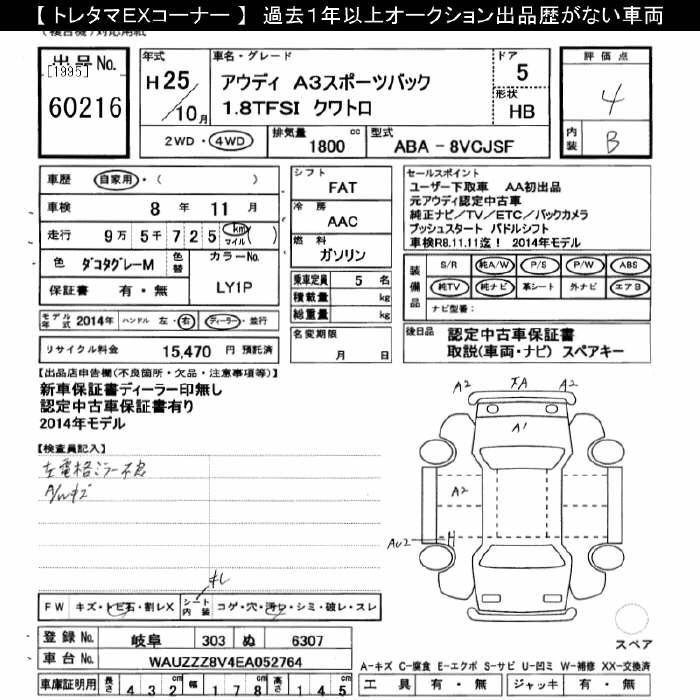 【 トレタマEXコーナー 】 過去1年以上オークション出品歴がない車両
出品No. [1995] 60216
年式 H25/10月
車名・グレード
アウディ A3スポーツバック
1.8TFSI クワトロ
ドア 5
形状 HB
評価点 4
内装 B
2WD・4WD 排気量 1800 cc 型式 ABA - 8VCJSF
車歴 自家用・( )
車検 8年 11月
走行 9万5千725 km マイル ( )
色 ダコタグレーM 色替 カラーNo. LY1P
保証書 有・無
モデル年式 2014年 ハンドル 左・右 ディーラー・並行
リサイクル料金 15,470 円 預託済
シフト FAT
冷房 AAC
燃料 ガソリン
乗車定員 5 名
積載量 kg
総重量 kg
名変期限 月 日
セールスポイント
ユーザー下取車 AA初出品
元アウディ認定中古車
純正ナビ/TV/ETC/バックカメラ
プッシュスタート パドルシフト
車検R8.11.11迄! 2014年モデル
装備品 S/R 純A/W P/S P/W ABS
純TV 純ナビ 革シート 外ナビ エアB
ナビ型番:
後日品 認定中古車保証書
取説(車両・ナビ) スペアキー
【出品店申告欄(不良箇所・欠品・注意事項等)】
新車保証書ディーラー印無し
認定中古車保証書有り
2014年モデル
【検査員記入】
左電格ミラー不良
A/Wキズ
A2 A2
A1
A2
AU2
FW キズ・トビ石・割レX シート内装 コゲ・穴・汚レ・シミ・破レ・スレ
キレ
登録No. 岐阜 303 ぬ 6307
車台No. WAUZZZ8V4EA052764
車庫証明用 長さ 432cm 幅 178cm 高さ 145cm
スペア
A-キズ C-腐食 E-エクボ S-サビ U-凹ミ W-補修 XX-交換済
工具 有・無 ジャッキ 有・無